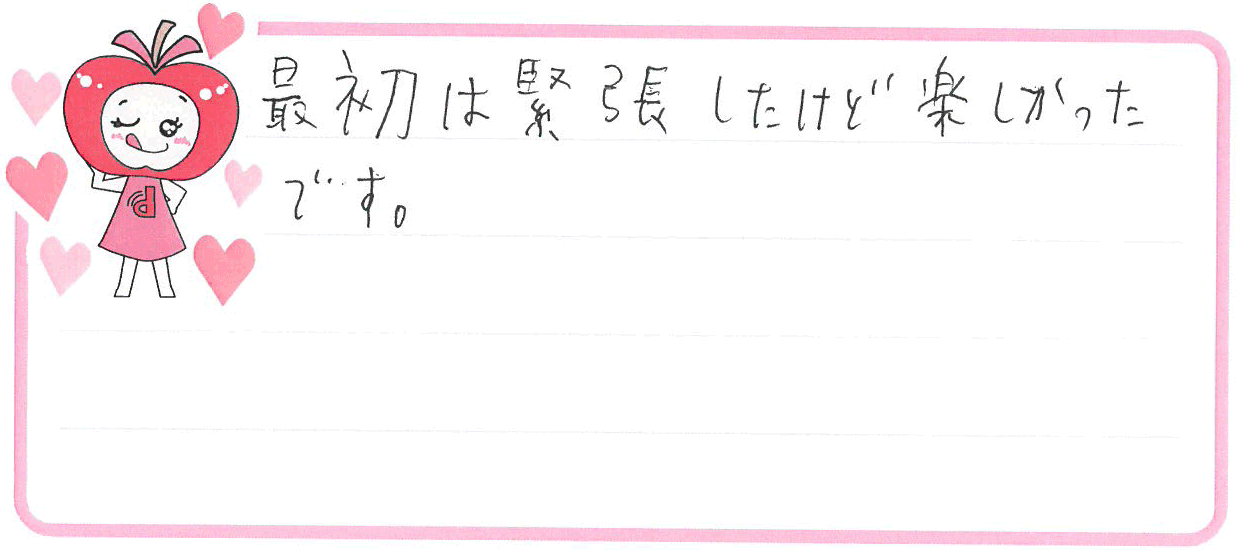 最初は緊張したけど楽しかった
です。